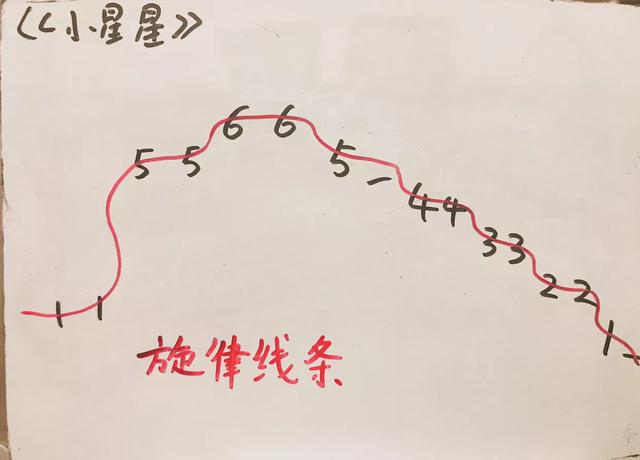 《小星星》
1 1 5 5 6 6 5 - 4 4 3 3 2 2 1 -
旋律线条